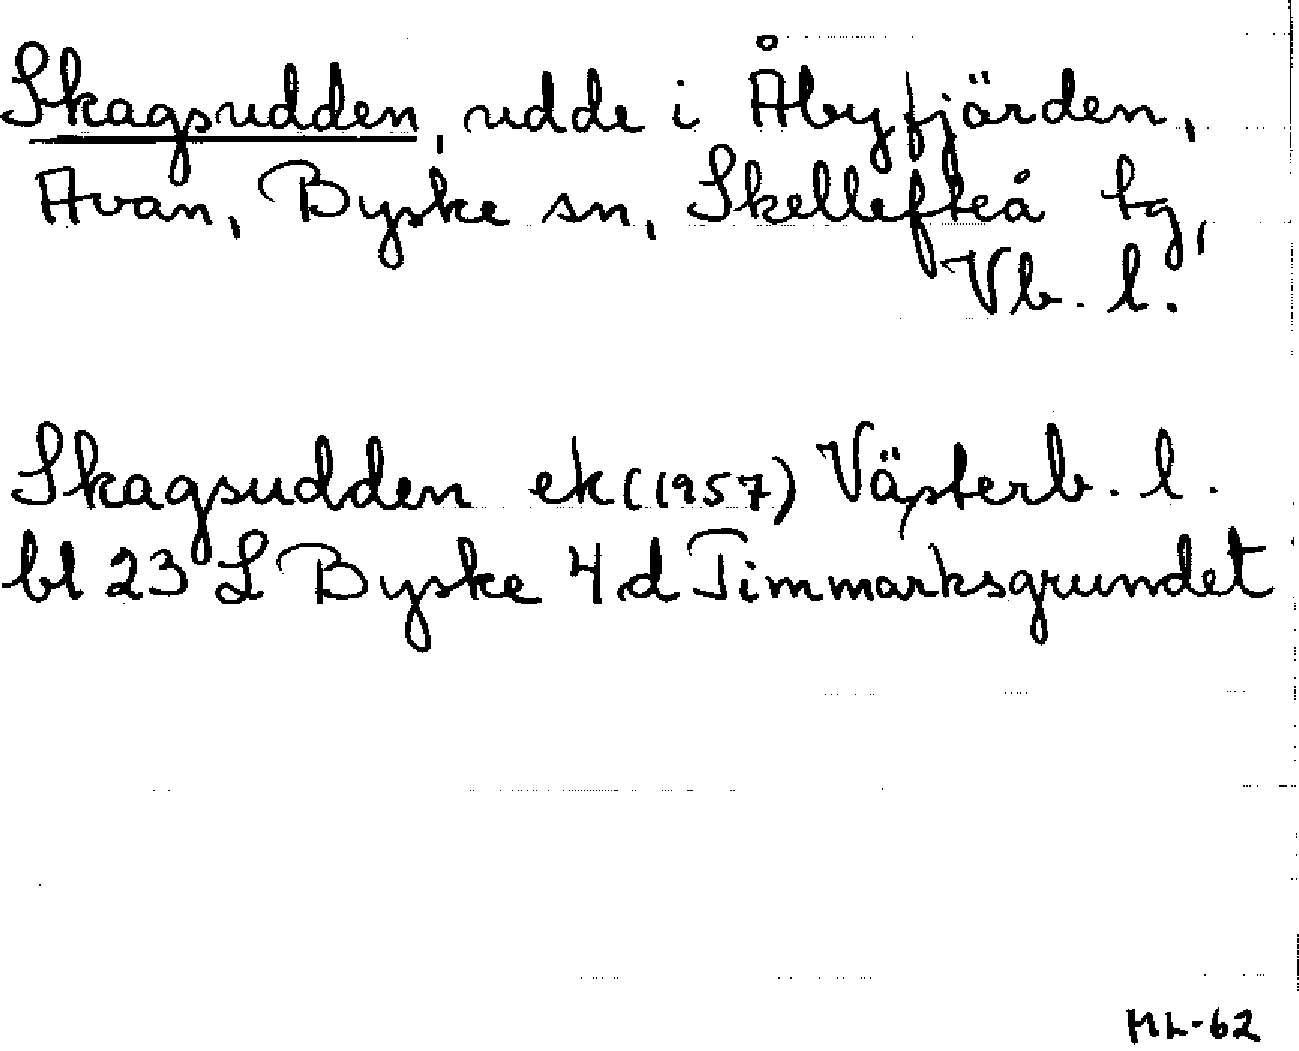 Skagsudden, udde i Åbyfjärden,
Avan, Byske sn, Skellefteå tg,
Vb. l.
Skagsudden ek (1957) Västerb. l.
bl 23 L Byske 4 d Timmarksgrundet
ML-62